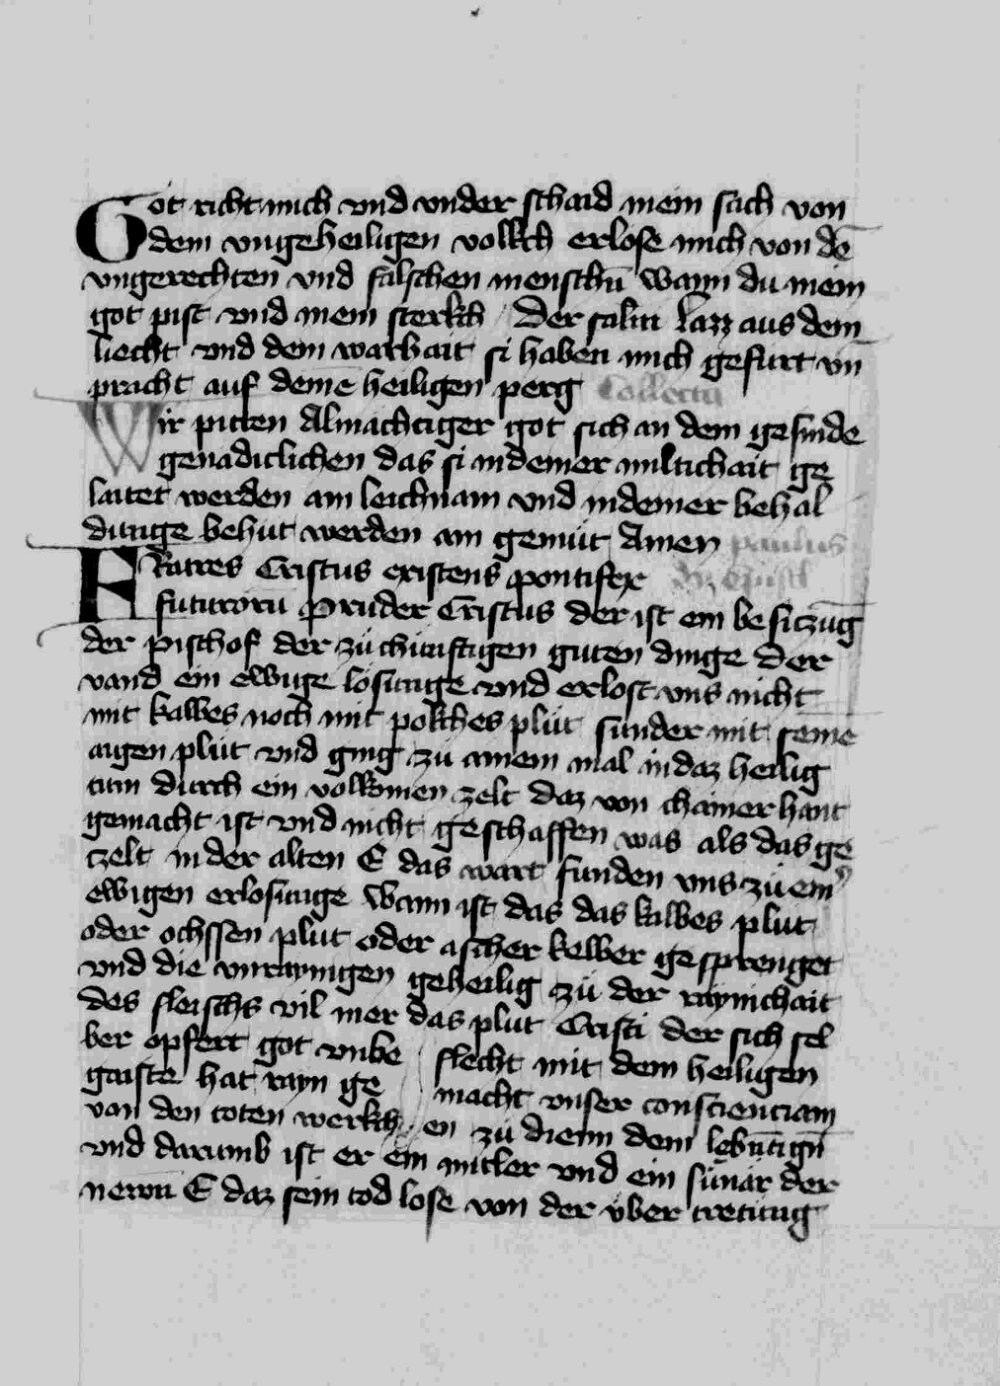 Got richt mich vnd vnder schaid mein sach von
dem vngeheiligen volkch erlose mich von dē
vngerechten vnd falschen menschn̄ wann du mein
got pist vnd mein sterkch Der salm Lazz aus dein
liecht vnd dein warhait si haben mich gefurt vn
pracht auf deinē heiligen perg Collecta
Wir pitten Almachtiger got sich an dein gesinde
genadiclichen das si in deiner miltichait ge
laitet werden am leichnam vnd in deiner behal
dunge behut werden am gemüt Amen paulus
FRatres Cristus existens pontifex
futurorū Pruder Cristus der ist ein besiczūg
der pischof der zu chunftigen guten dinge Der
vand ein ewige losunge vnd erlost vns nicht
mit kalbes noch mit polkches plüt sunder mit seinē
aigen plüt vnd ging zü ainem mal in daz heilig
tum durch ein volkomen zelt daz von chainer hant
gemacht ist vnd nicht geschaffen was als das ge
tzelt in der alten E das wart funden vns zü ein
ewigen erlosunge Wann ist das das kalbes plut
oder ochssen plut oder ascher kelber gesprenget
vnd die vnraynigen geheilig zü der raynichait
des fleischs vil mer das plut Cristi der sich sel
ber opfert got vnbe flecht mit dem heiligen
gaiste hat rayn ge macht vnser conscienciam
von den toten werkch en zü dienn dem lebn̄tign̄
vnd darumb ist er ein mitler vnd ein sünär der
newn̄ E daz sein tod lose von der über tretung